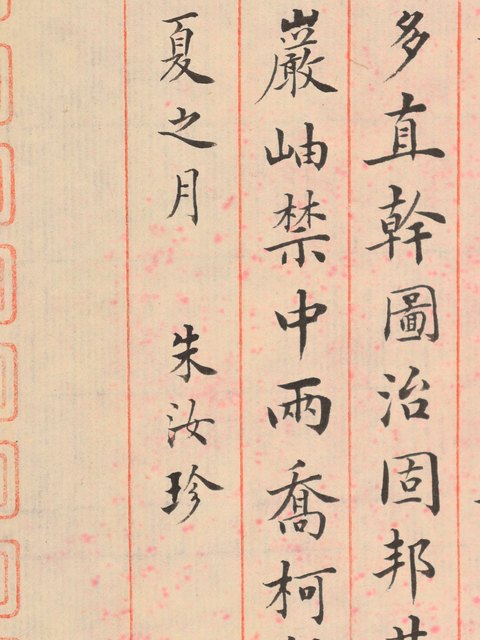 多直幹圖治固邦
巖岫禁中兩喬柯
夏之月 朱汝珍